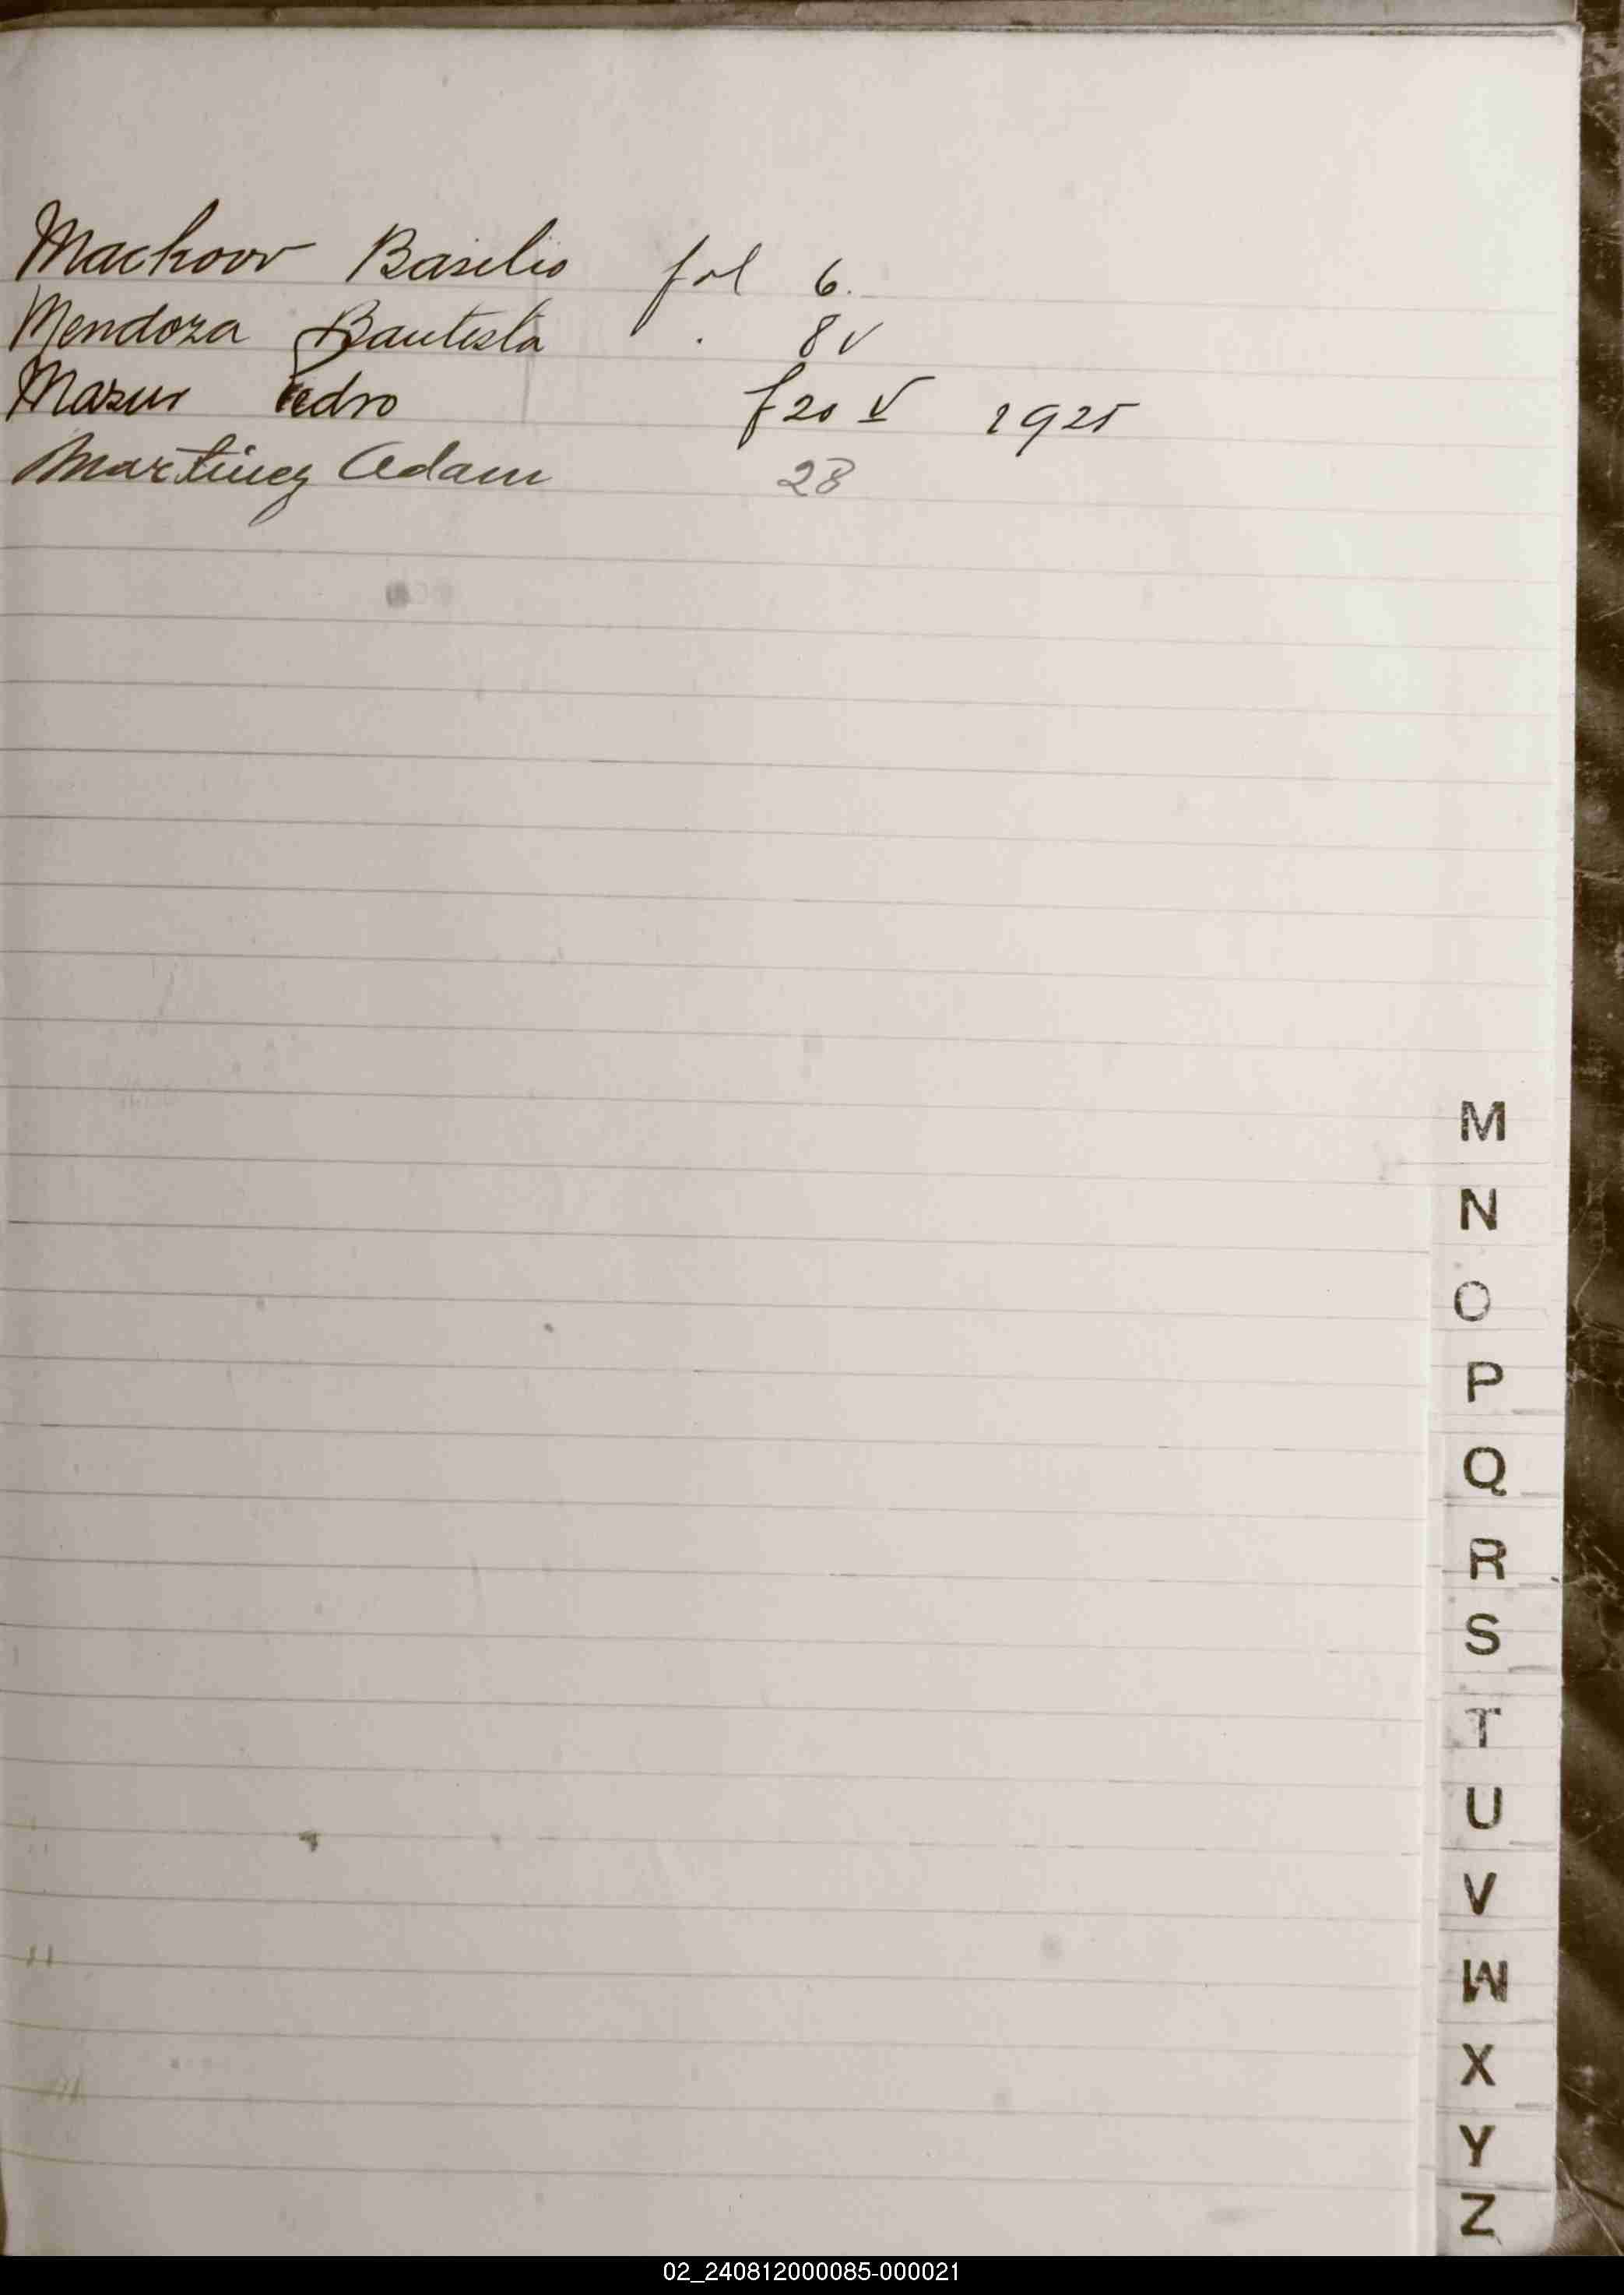 Mackoov Basilio fol 6.
Mendoza Bautista . 8 v
Mazur Pedro f 20 v 1925
Martinez Adam 28
M
N
O
P
Q
R
S
T
U
V
W
X
Y
Z
02_240812000085-000021